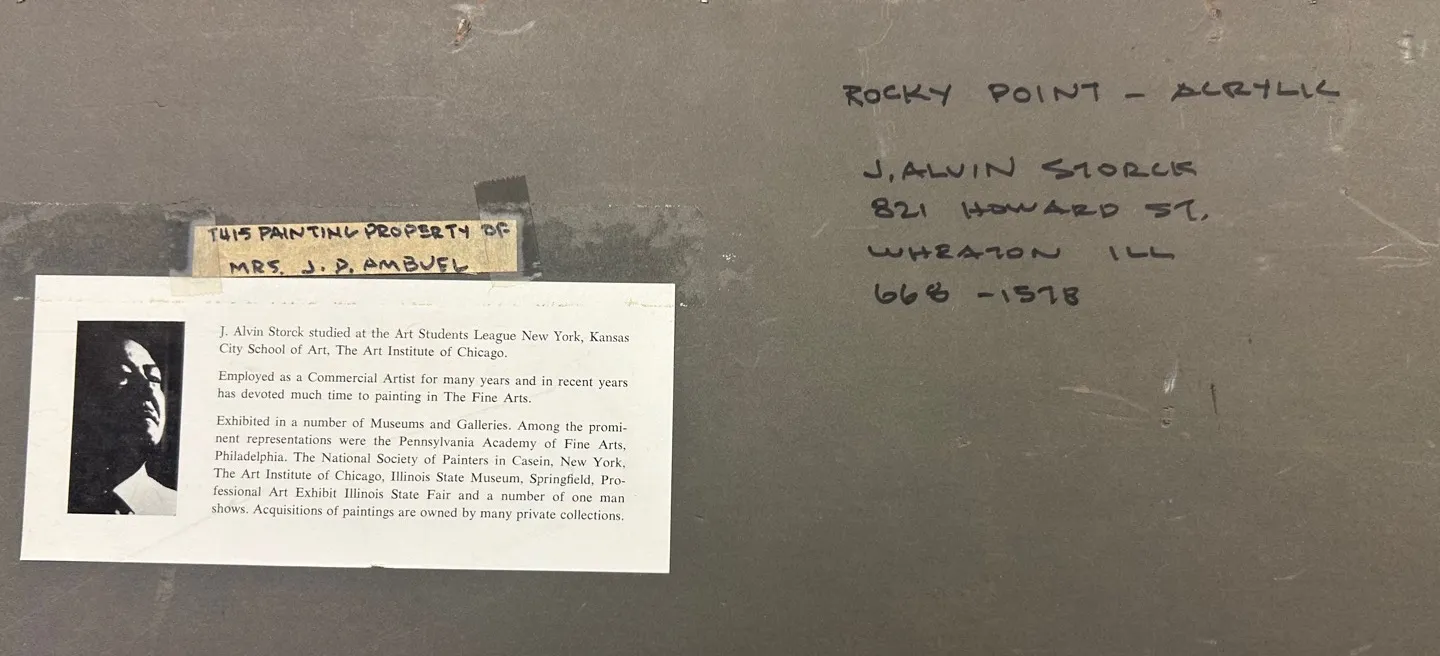 ROCKY POINT - ACRYLIC
J. ALVIN STORCK
821 HOWARD ST.
WHEATON ILL
668-1578
THIS PAINTING PROPERTY OF
MRS. J. D. AMBUEL
J. Alvin Storck studied at the Art Students League New York, Kansas
City School of Art, The Art Institute of Chicago.
Employed as a Commercial Artist for many years and in recent years
has devoted much time to painting in The Fine Arts.
Exhibited in a number of Museums and Galleries. Among the promi-
nent representations were the Pennsylvania Academy of Fine Arts,
Philadelphia. The National Society of Painters in Casein, New York,
The Art Institute of Chicago, Illinois State Museum, Springfield, Pro-
fessional Art Exhibit Illinois State Fair and a number of one man
shows. Acquisitions of paintings are owned by many private collections.